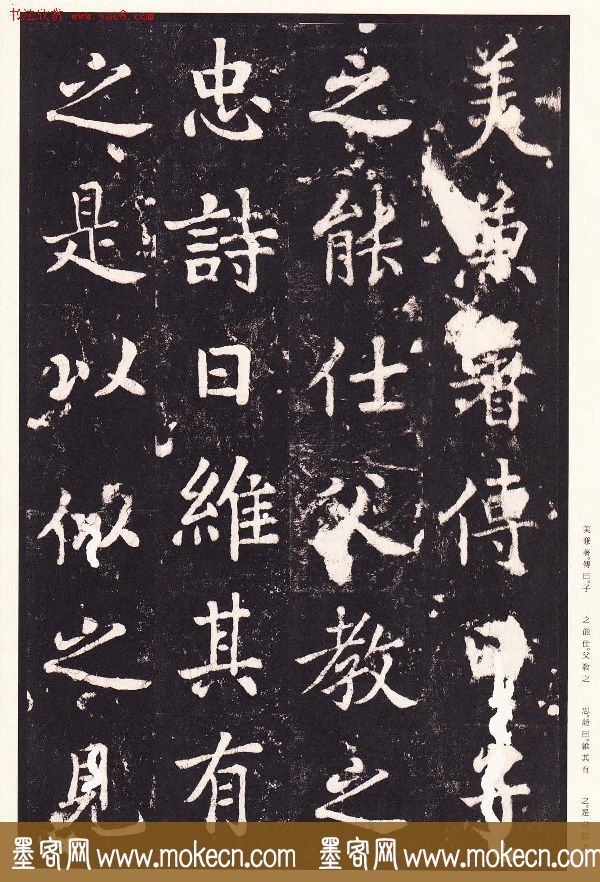 书法欣赏 www.yac8.com
美兼著傳曰子
之能仕父教之
忠詩曰維其有
之是以似之見
美兼著。傳曰。子
之能仕。父教之
忠。詩曰。維其有
之。是
墨客网 www.mokecn.com 墨客网 www.mokecn.com